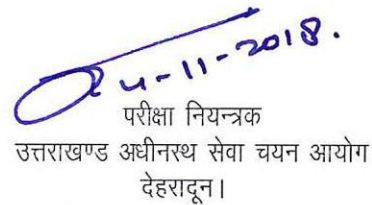 4-11-2018.
परीक्षा नियन्त्रक
उत्तराखण्ड अधीनस्थ सेवा चयन आयोग
देहरादून।